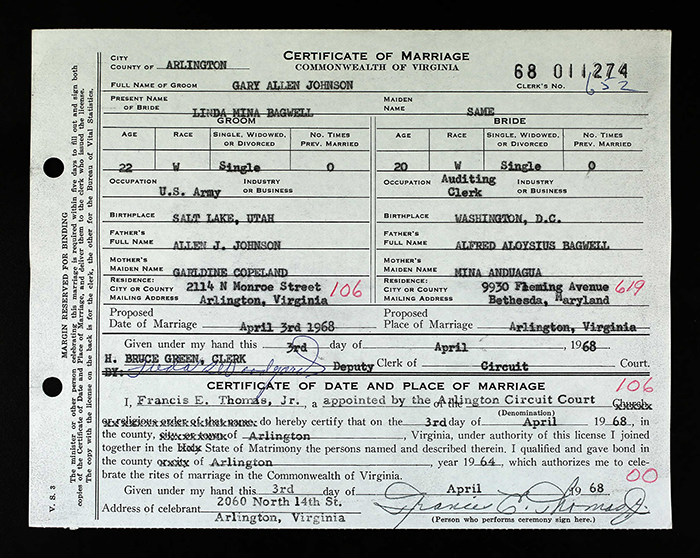 CITY
COUNTY OF ARLINGTON
CERTIFICATE OF MARRIAGE
COMMONWEALTH OF VIRGINIA
68 011274
FULL NAME OF GROOM GARY ALLEN JOHNSON
CLERK'S NO. 652
PRESENT NAME OF BRIDE LINDA MINA BAGWELL
MAIDEN NAME SAME
GROOM
BRIDE
AGE RACE SINGLE, WIDOWED, OR DIVORCED NO. TIMES PREV. MARRIED
AGE RACE SINGLE, WIDOWED, OR DIVORCED NO. TIMES PREV. MARRIED
22 W Single 0
20 W Single 0
OCCUPATION U.S. Army INDUSTRY OR BUSINESS
OCCUPATION Auditing Clerk INDUSTRY OR BUSINESS
BIRTHPLACE SALT LAKE, UTAH
BIRTHPLACE WASHINGTON, D.C.
FATHER'S FULL NAME ALLEN J. JOHNSON
FATHER'S FULL NAME ALFRED ALOYSIUS BAGWELL
MOTHER'S MAIDEN NAME GARLDINE COPELAND
MOTHER'S MAIDEN NAME MINA ANDUAGUA
RESIDENCE: CITY OR COUNTY MAILING ADDRESS 2114 N Monroe Street Arlington, Virginia 106
RESIDENCE: CITY OR COUNTY MAILING ADDRESS 9930 Fleming Avenue Bethesda, Maryland 619
Proposed Date of Marriage April 3rd 1968
Proposed Place of Marriage Arlington, Virginia
Given under my hand this 3rd day of April, 1968
H. BRUCE GREEN, CLERK
BY: Deputy Clerk of Circuit Court.
CERTIFICATE OF DATE AND PLACE OF MARRIAGE
106
I, Francis E. Thomas, Jr., a appointed by the Arlington Circuit Court Church
(Denomination)
or religious order of that name, do hereby certify that on the 3rd day of April 1968, in
the county, city or town of Arlington, Virginia, under authority of this license I joined
together in the Holy State of Matrimony the persons named and described therein. I qualified and gave bond in
the county of Arlington, year 1964, which authorizes me to cele-
brate the rites of marriage in the Commonwealth of Virginia.
00
Given under my hand this 3rd day of April 1968
Address of celebrant 2060 North 14th St.
Arlington, Virginia
Francis E. Thomas Jr.
(Person who performs ceremony sign here.)
V. S. 3
MARGIN RESERVED FOR BINDING
The minister or other person celebrating this marriage is required within five days to fill out and sign both
copies of the Certificate of Date and Place of Marriage, and deliver them to the clerk who issued the license.
The copy with the license on the back is for the clerk, the other for the Bureau of Vital Statistics.